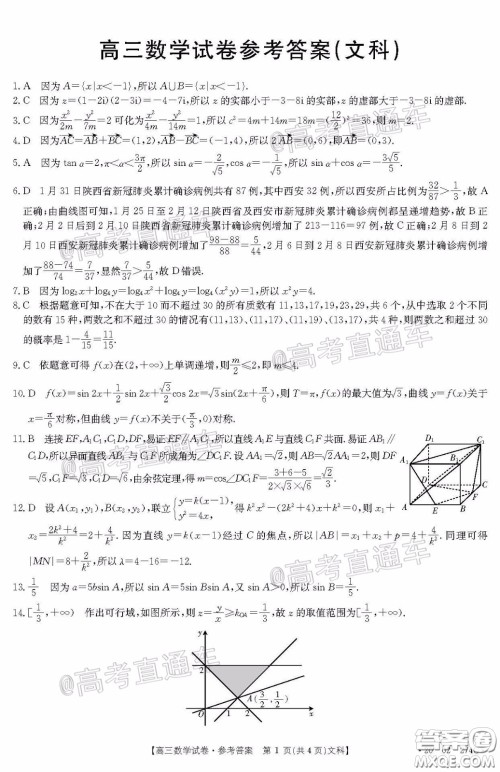 高三数学试卷参考答案(文科)
1. A 因为A={x|x<-1},所以A∪B={x|x<-1}.
2. C 因为z=(1-2i)(2-3i)=-4-7i,所以z的实部小于-3-8i的实部,z的虚部大于-3-8i的虚部.
3. C 因为x²/2m-y²/7m=2可化为x²/4m-y²/14m=1,所以c²=4m+14m=18m=(12/2)²=36,则m=2.
5. A 因为tan α=2,π<α<3π/2,所以sin α=-2/√5,cos α=-1/√5,所以sin α+cos α=-3√5/5.
6. D 1月31日陕西省新冠肺炎累计确诊病例共有87例,其中西安32例,所以西安所占比例为32/87>1/3,故A
正确;由曲线图可知,1月25日至2月12日陕西省及西安市新冠肺炎累计确诊病例都呈递增趋势,故B正
确;2月2日后到2月10日陕西省新冠肺炎累计确诊病例增加了213-116=97例,故C正确;2月8日到2
月10日西安新冠肺炎累计确诊病例增加了98-88/88=5/44,2月6日到2月8日西安新冠肺炎累计确诊病例增
加了88-74/74=7/37,显然7/37>5/44,故D错误.
7. B 因为log₂x+log₄y=log₄x²+log₄y=log₄(x²y)=1,所以x²y=4.
8. C 根据题意可知,不在大于10而不超过30的所有质数有11,13,17,19,23,29,共6个,从中选取2个不同
的数有15种,两数之和不超过30的情况有(11,13),(11,17),(11,19),(13,17),共4种,则两数之和超过30
的概率是1-4/15=11/15.
9. C 依题意可得f(x)在(2,+∞)上单调递增,则m/2≤2,即m≤4.
10. D f(x)=sin 2x+1/2 sin 2x+√3/2 cos 2x=√3sin(2x+π/6),则T=π,f(x)的最大值为√3,曲线y=f(x)关于
x=π/6对称,但曲线y=f(x)不关于(-π/6,0)对称.
11. B 连接EF,A₁C₁,C₁D,DF,易证EF∥A₁C₁,所以直线A₁E与直线C₁F共面.易证AB₁∥
DC₁,所以异面直线AB₁与C₁F所成角为∠DC₁F.设AA₁=√2,则AB=√2AA₁=2,则DF
=√5,C₁F=√3,C₁D=√6,由余弦定理,得m=cos∠DC₁F=3+6-5/2×√3×√6=√2/3.
12. D 设A(x₁,y₁),B(x₂,y₂),联立{y=k(x-1), y²=4x,得k²x²-(2k²+4)x+k²=0,则x₁+
x₂=2k²+4/k²=2+4/k².因为直线y=k(x-1)经过C的焦点,所以|AB|=x₁+x₂+p=4+4/k².同理可得
|MN|=8+4/k²,所以λ=4-16=-12.
13. 1/5 因为a=5bsin A,所以sin A=5sin Bsin A,又sin A>0,所以sin B=1/5.
14. [1/3,+∞) 作出可行域,如图所示,则z=y/x≥k_OA=1/3,故z的取值范围为[1/3,+∞).
D₁
C₁
A₁
B₁
D
F
C
A
E
B
y
2
A(3/2,1/2)
O
1
2
x
【高三数学试卷·参考答案 第1页(共4页)文科】
@高考直通车
@高考直通车
@高考直通车
@高考直通车